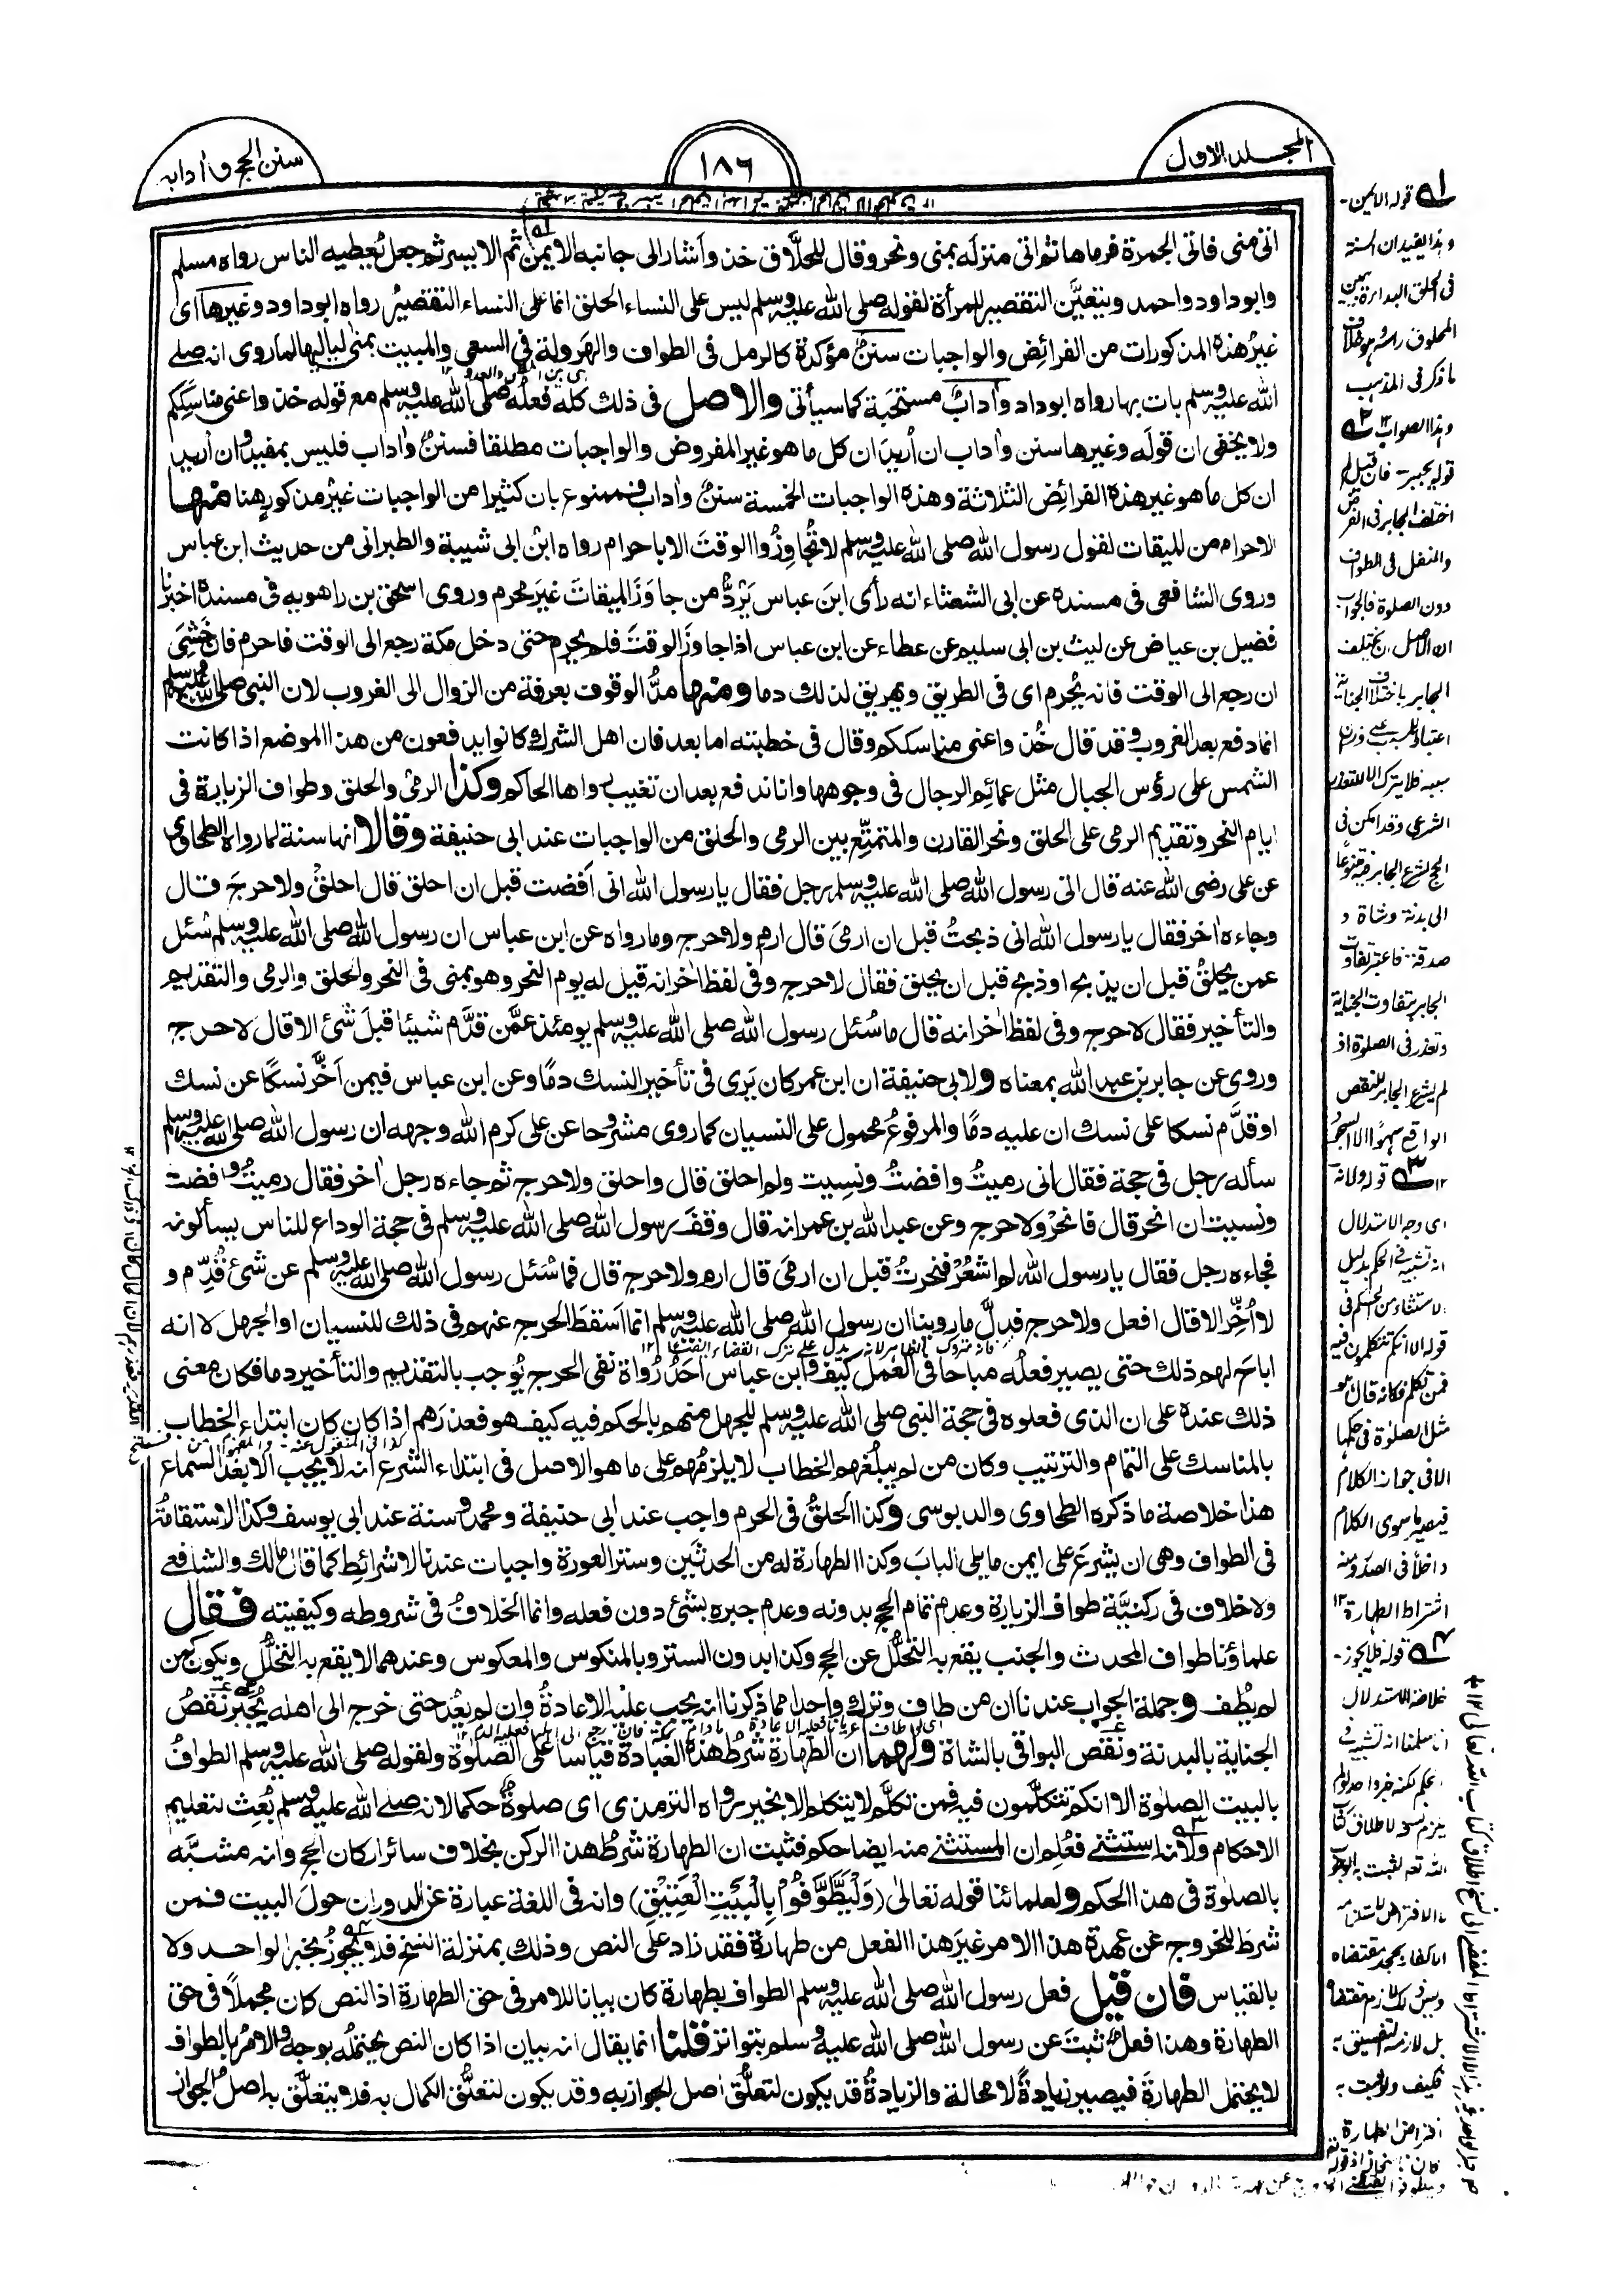 المجلد الاول
١٨٦
سنن الحج و اٰدابه
اتى منى فاتى الجمرة فرماها ثم اتى منزله بمنى ونحر وقال للحلاق خذ وأشار الى جانبه الايمن ثم الايسر ثم جعل يُعطيه الناس رواه مسلم
وابوداود واحمد ويتعيَّن التقصير للمرأة لقوله صلى الله عليه وسلم ليس على النساء الحلق انما على النساء التقصيرُ رواه ابوداود وغيرها اى
غيرُ هذه المذكورات من الفرائض والواجبات سننٌ مؤكدة كالرمل فى الطواف والهرولة فى السعى والمبيت بمنى لياليها لما روى انه صلى
الله عليه وسلم بات بها رواه ابوداد واٰدابٌ مستحبة كما سيأتى والاصل فى ذلك كله فعله صلى الله عليه وسلم مع قوله خذواعنى مناسككم
ولا يخفى ان قوله وغيرها سنن واٰداب ان أُريدَ ان كل ما هو غير المفروض والواجبات مطلقا فسننٌ واٰداب فليس بمفيد وان اريد
ان كل ما هو غير هذه الفرائض الثلاثة وهذه الواجبات الخمسة سننٌ واٰداب فممنوع بان كثيرا من الواجبات غيرُ مذكور هنا منها
الاحرام من الميقات لقول رسول الله صلى الله عليه وسلم لا تُجاوِزُوا الوقتَ الا باحرام رواه ابن ابى شيبة والطبرانى من حديث ابن عباس
وروى الشافعى فى مسنده عن ابى الشعثاء انه رأى ابنَ عباس يَرُدُّ من جاوَزَ الميقاتَ غيرَ محرم وروى اسحٰق بن راهويه فى مسنده اخبرنا
فضيل بن عياض عن ليث بن ابى سليم عن عطاء عن ابن عباس اذا جاوزَ الوقتَ فلم يحرم حتى دخل مكة رجع الى الوقت فاحرم فان خَشِىَ
ان رجع الى الوقت فانه يُحرم اى فى الطريق ويهريق لذلك دما ومنها مدُّ الوقوف بعرفة من الزوال الى الغروب لان النبى صلى الله عليه وسلم
انما دفع بعد الغروب وقد قال خُذواعنى مناسككم وقال فى خطبته اما بعد فان اهل الشرك كانوا يدفعون من هذا الموضع اذا كانت
الشمس على رؤس الجبال مثل عمائم الرجال فى وجوهها وانا ندفع بعد ان تغيب رواها الحاكم وكذا الرمى والحلق وطواف الزيارة فى
ايام النحر وتقديم الرمى على الحلق ونحر القارن والمتمتِّع بين الرمى والحلق من الواجبات عند ابى حنيفة وقالا انها سنة لما رواه الطحاوى
عن على رضى الله عنه قال اتى رسول الله صلى الله عليه وسلم رجل فقال يا رسول الله انى اَفضت قبل ان احلق قال احلقْ ولا حرجَ قال
وجاءه اٰخر فقال يا رسول الله انى ذبحتُ قبل ان ارمىَ قال ارم ولا حرج وما رواه عن ابن عباس ان رسول الله صلى الله عليه وسلم سُئل
عمن يحلقُ قبل ان يذبح او ذبح قبل ان يحلق فقال لا حرج وفى لفظ اٰخر انه قيل له يوم النحر وهو بمنى فى النحر والحلق والرمى والتقديم
والتأخير فقال لا حرج وفى لفظ اٰخر انه قال ما سُئل رسول الله صلى الله عليه وسلم يومئذ عمَّن قدَّم شيئا قبلَ شئ الا قال لا حرج
وروى عن جابر بن عبد الله بمعناه ولابى حنيفة ان ابن عمر كان يَرى فى تأخير النسك دمًا وعن ابن عباس فيمن اَخَّر نسكًا عن نسك
او قدَّم نسكا على نسك ان عليه دمًا والمرفوعُ محمول على النسيان كما روى مشروحا عن على كرم الله وجهه ان رسول الله صلى الله عليه وسلم
سأله رجل فى حجة فقال انى رميتُ وافضتُ ونسِيت ولم احلق قال واحلق ولا حرج ثم جاءه رجل اٰخر فقال رميتُ وافضت
ونسيت ان انحر قال فانحرْ ولا حرج وعن عبد الله بن عمر انه قال وقف رسول الله صلى الله عليه وسلم فى حجة الوداع للناس يسألونه
فجاءه رجل فقال يا رسول الله لم اشعُرْ فنحرتُ قبل ان ارمىَ قال ارم ولا حرج قال فما سُئل رسول الله صلى الله عليه وسلم عن شئ قُدِّم و
لا اُخِّر الا قال افعل ولا حرج فدلَّ ما روينا ان رسول الله صلى الله عليه وسلم انما اَسقط الحرج عنهم فى ذلك للنسيان او الجهل لا انه
اباحَ لهم ذلك حتى يصير فعلُه مباحا فى العمل كيف وابن عباس اَحَدُ رُواة نفى الحرج يُوجب بالتقديم والتأخير دما فكان معنى
ذلك عنده على ان الذى فعلوه فى حجة النبى صلى الله عليه وسلم للجهل منهم بالحكم فيه كيف هو فعذرهم اذا كان كان ابتداء الخطاب
بالمناسك على التمام والترتيب وكان من لم يبلُغهم الخطاب لا يلزمُهم على ما هو الاصل فى ابتداء الشرع انه لا يجب الا بعد السماع
هذا خلاصة ما ذكره الطحاوى والدبوسى وكذا الحلقُ فى الحرم واجب عند ابى حنيفة ومحمد وسنة عند ابى يوسف وكذا الاستقامةُ
فى الطواف وهى ان يشرعَ على ايمن ما يلى البابَ وكذا الطهارة له من الحدثَين وستر العورة واجبات عندنا لا شرائط كما قال مالك والشافعى
ولا خلاف فى ركنيَّة طواف الزيارة وعدم تمام الحج بدونه وعدم جبره بشئ دون فعله وانما الخلافُ فى شروطه وكيفيته فقال
علماؤنا طواف المحدث والجنب يقع به التحلُّل عن الحج وكذا بدون الستر وبالمنكوس والمعكوس وعندهما لا يقع به التحلُّل ويكون كمن
لم يطُف وجملة الجواب عندنا ان من طاف وترك واحدا مما ذكرنا انه يجب عليه الاعادةُ وان لم يعُد حتى خرج الى اهله يُجبَر نقصُ
الجناية بالبدنة ونقص البواقى بالشاة ولهما ان الطهارة شرطُ هذه العبادة قياسا على الصلوة ولقوله صلى الله عليه وسلم الطوافُ
بالبيت الصلوة الا انكم تتكلَّمون فيه فمن تكلَّم لا يتكلم الا بخير رواه الترمذى اى صلوةٌ حكما لانه صلى الله عليه وسلم بُعث لتعليم
الاحكام ولانه استثنى فعُلم ان المستثنى منه ايضا حكم فثبت ان الطهارة شرطُ هذا الركن بخلاف سائر اركان الحج وانه مشبَّه
بالصلوة فى هذا الحكم ولعلمائنا قوله تعالىٰ (وَلْيَطَّوَّفُوْا بِالْبَيْتِ الْعَتِيْقِ) وانه فى اللغة عبارة عن الدوران حولَ البيت فمن
شرطَ للخروج عن عهدة هذا الامر غيرَ هذا الفعل من طهارة فقد زاد على النص وذلك بمنزلة النسخ فلا يجوزُ بخبر الواحد ولا
بالقياس فان قيل فعل رسول الله صلى الله عليه وسلم الطواف بطهارة كان بيانا للامر فى حق الطهارة اذ النص كان مجملًا فى حق
الطهارة وهذا فعل ثبتَ عن رسول الله صلى الله عليه وسلم بتواتر قلنا انما يقال انه بيان اذا كان النص يحتملُه بوجه والامرُ بالطواف
لا يحتمل الطهارةَ فيصير زيادةً لا محالة والزيادةُ قد يكون لتعلُّق اصل الجواز به وقد يكون لتعلُّق الكمال به فلا يتعلَّق به اصلُ الجواز
قوله الايمن -
وهذا يفيد ان السنة
فى الحلق البداءة بيمين
المحلوق رأسه وهو خلاف
ما ذكر فى المذهب
وهذا الصواب ١٢
قوله يجبر - فان قيل لم
اختلف الجابر فى الفرض
والنفل فى الطواف
دون الصلوة فالجواب
ان الاصل ان يختلف
الجابر باختلاف الجناية
الشرعى وقد امكن فى
الى بدنة وشاة و
صدقة فاعتبر تفاوت
الجابر بتفاوت الجناية
وتعذر فى الصلوة اذ
لم يشرع الجابر للنقص
الواقع سهوًا الا السجود
١٢ قوله ولانه
اى وجه الاستدلال
انه تشبيه فى الحكم بدليل
الاستثناء من الحكم فى
قوله الا انكم تتكلمون فيه
فمن تكلم فكانه قال هو
مثل الصلوة فى حكمها
الا فى جواز الكلام
فيصير ما سوى الكلام
داخلا فى الصدر ومنه
اشتراط الطهارة ١٢
قوله فلا يجوز -
خلاصة الاستدلال